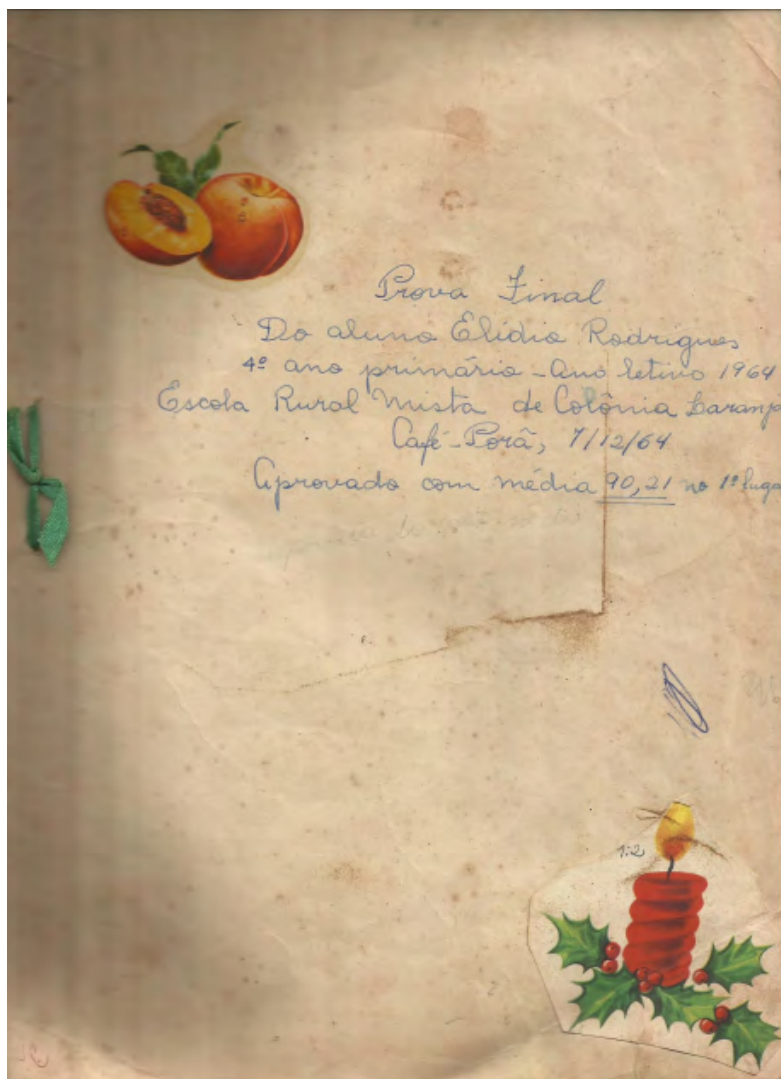 Prova Final
Do aluno Elídio Rodrigues
4º ano primário - Ano letivo 1964
Escola Rural Mista de Colônia Laranj
Café-Porã, 7/12/64
Aprovado com média 90,21 no 1º luga
1:2